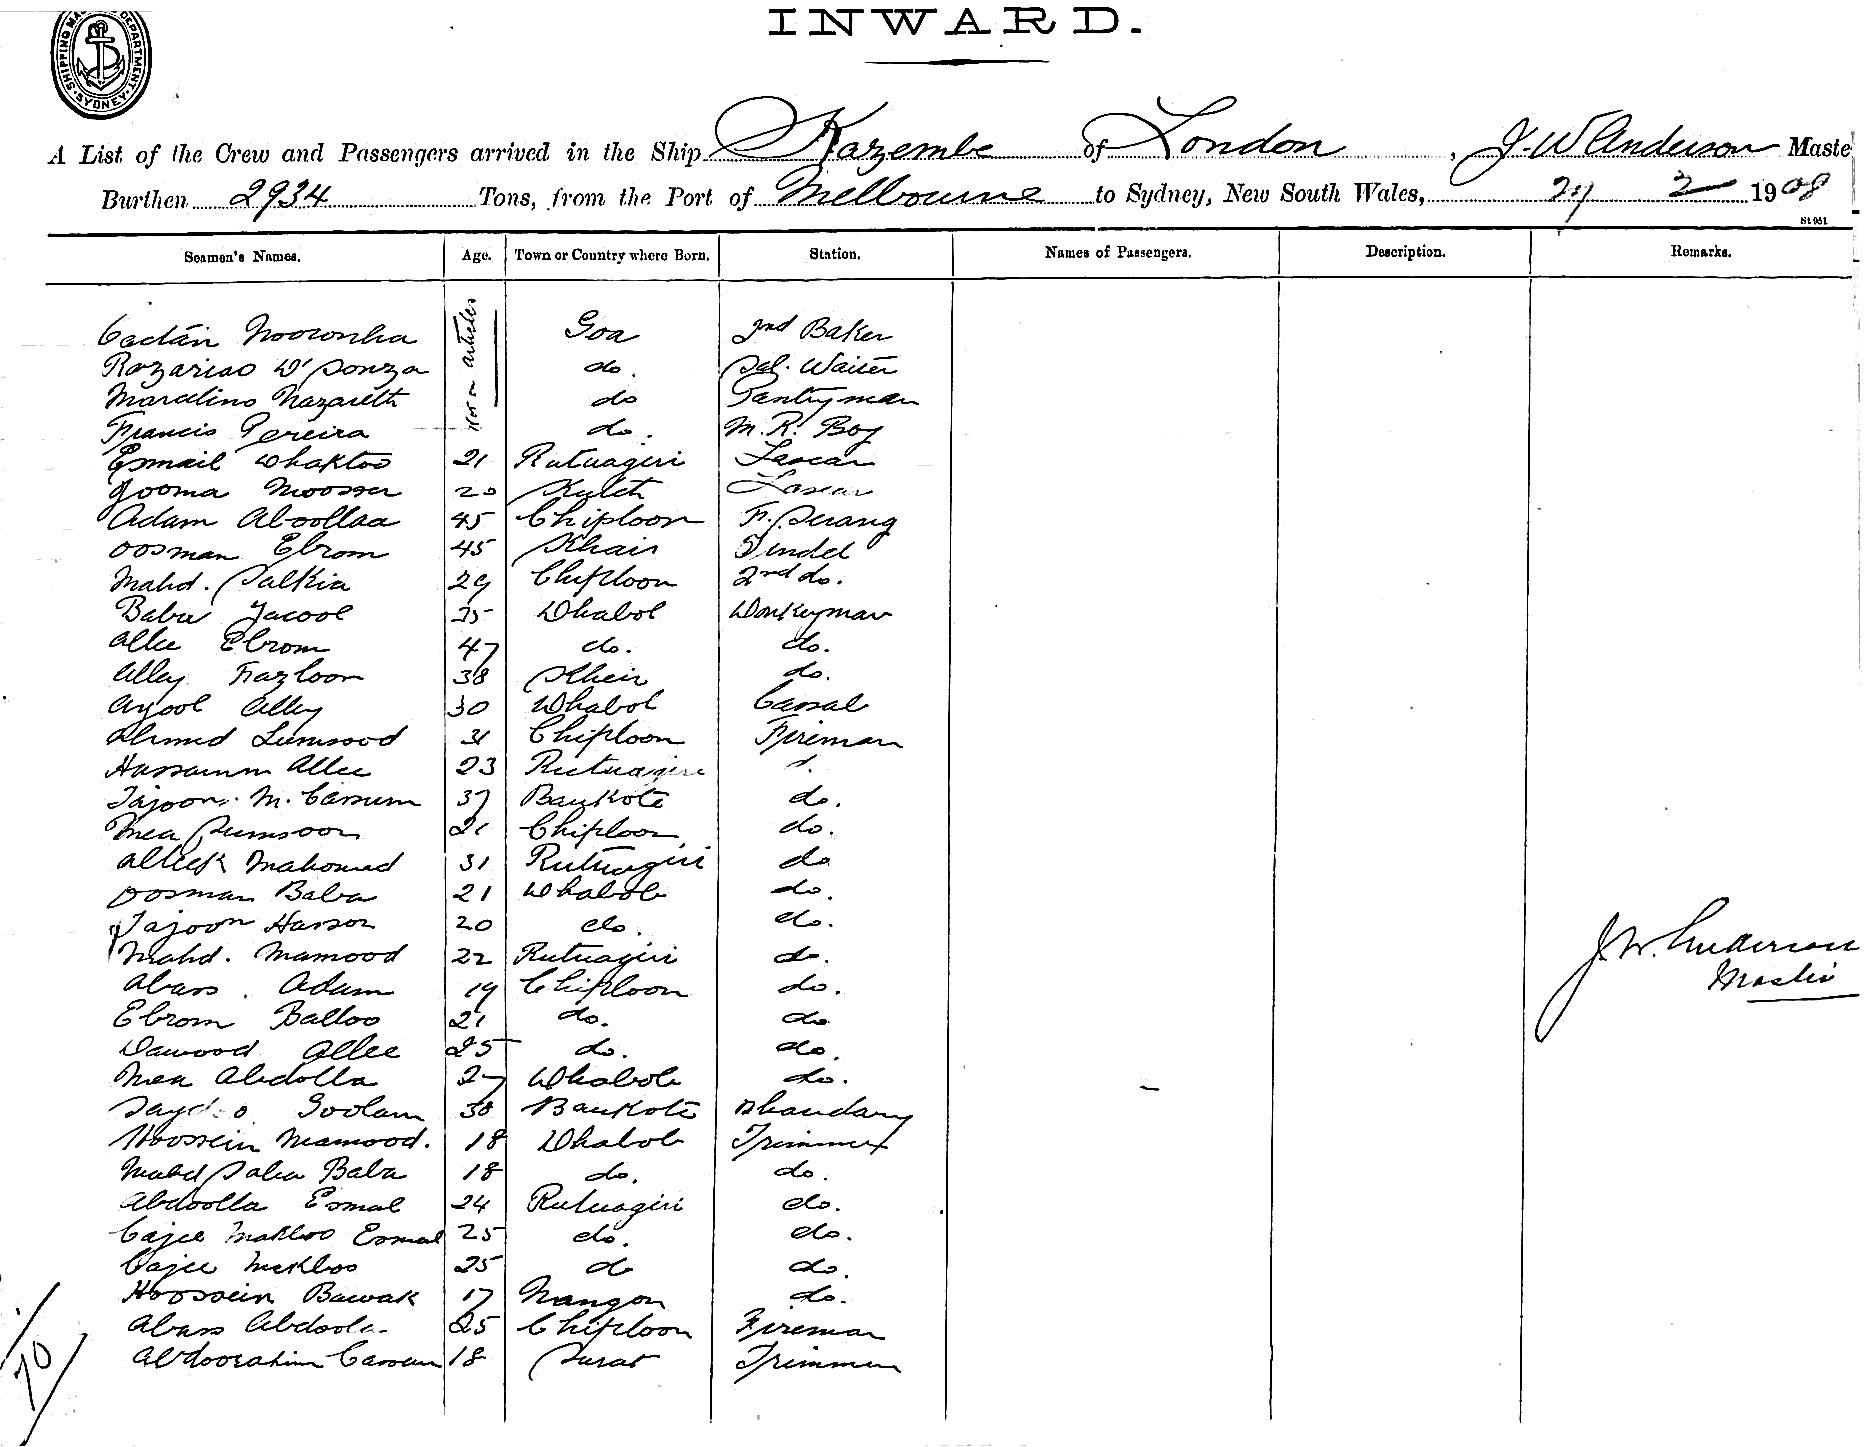 INWARD.
SHIPPING MASTER'S DEPARTMENT SYDNEY
A List of the Crew and Passengers arrived in the Ship Kazembe of London, J. W Anderson Maste
Burthen 2934 Tons, from the Port of Melbourne to Sydney, New South Wales, 27 2 1908
St 051
Seamen's Names. Age. Town or Country where Born. Station. Names of Passengers. Description. Remarks.
Not on articles
Caetán Nooronha Goa 2nd Baker
Rozariao D'Souza do. Sal. Waiter
Marcelino Nazareth do Pantryman
Francis Pereira do. M. R. Boy
Esmail Dhaktoo 21 Rutnagiri Lascar
Jooma Moosa 20 Lascar
Adam Aboollaa 45 Chiploon F. Serang
Oosman Ebrom 45 Khair Tindel
Mahd. Salkia 29 Chiploon 2nd do.
Baba Yacool 35 Dhabol Donkeyman
Allee Ebrom 47 do. do.
Alley Fazloon 38 Kheir do.
Ayool Alley 30 Dhabol Cassab
Ahmed 31 Chiploon Fireman
Hassainm Allee 23 Rutnagiri
Tajoon M. Cassum 37 Bankote do.
Mea Sumsoon 21 Chiploon do.
Alleek Mahomed 31 Rutnagiri do
Oosman Baba 21 Dhabol do.
Tajoon Hasson 20 do. do.
Mahd. Mamood 22 Rutnagiri do.
Abass Adam 19 Chiploon do.
Ebrom Balloo 21 do. do
Dawood Allee 25 do. do.
Mea Abdolla 27 Dhabol do.
Goolam 38 Bankote Bhandary
Hoossein Mamood. 18 Dhabol Trimmer
Mahd Salia Baba 18 do. do.
Abdoolla Esmal 24 Rutnagiri do.
Cajee Makloo Esmal 25 do. do.
Cajee Mukloo 25 do do.
Hoossein Bawak 17 Nangon do.
Abass Abdoola 25 Chiploon Fireman
Abdoorahim Cassum 18 Surat Trimmer
J. W. Anderson
Master
70